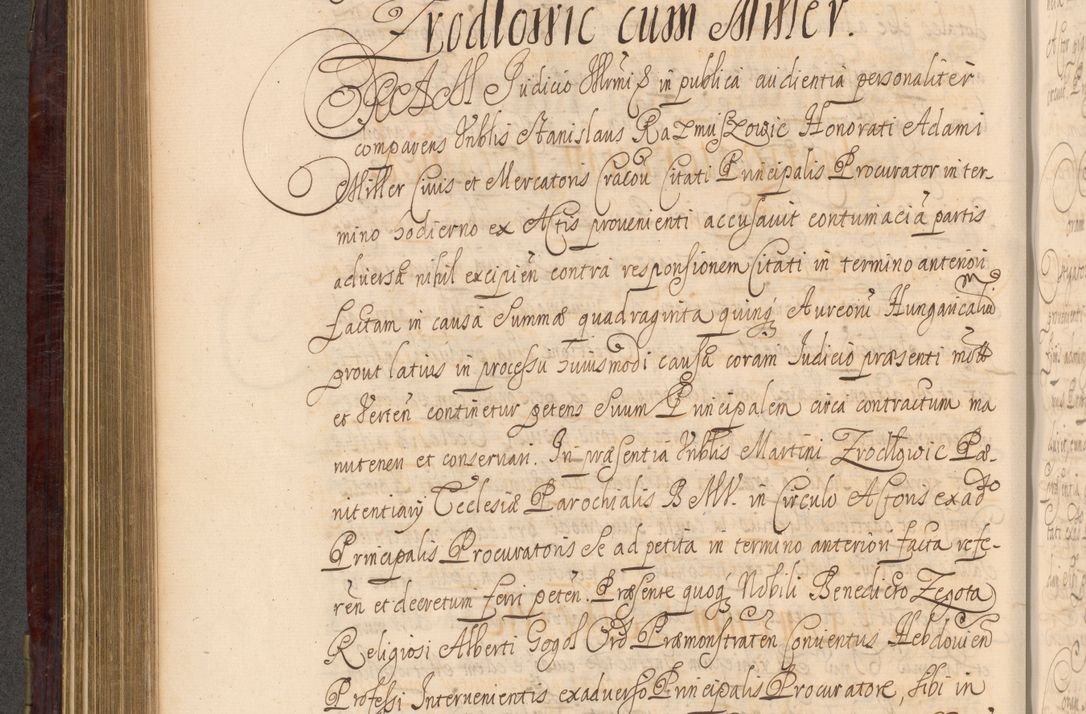 Zrodlowic cum Miller.
CORAM Judicio Illrmi & in publica audientia personaliter
comparens Nblis Stanislaus Razmuszowic Honorati Adami
Miller Civis et Mercatoris Cracou Citati Principalis Procurator in ter-
mino hodierno ex Actis provenienti accusavit contumacia partis
adversæ nihil excipien contra responsionem Citati in termino anteriori
factam in causa Summæ quadraginta quinq Aureoru Hungaricaliu
prout latius in processu huiusmodi causæ coram Judicio præsenti mott
et Verten continetur petens Suum Principalem circa contractum ma
nutenen et conservari. In præsentia Nblis Martini Zrodlowic Pæ-
nitentiarij Ecclesiæ Parochialis B M V. in Circulo Actoris exad
Principalis Procuratoris Se ad petita in termino anteriori facta refe-
ren et decretum ferri peten. Præsente quoq Nobili Benedicto Zegota
Religiosi Alberti Gogol Ord Præmonstraten Conventus Hebdovien
Professi Intervenientis exadverso Principalis Procuratore, sibi in